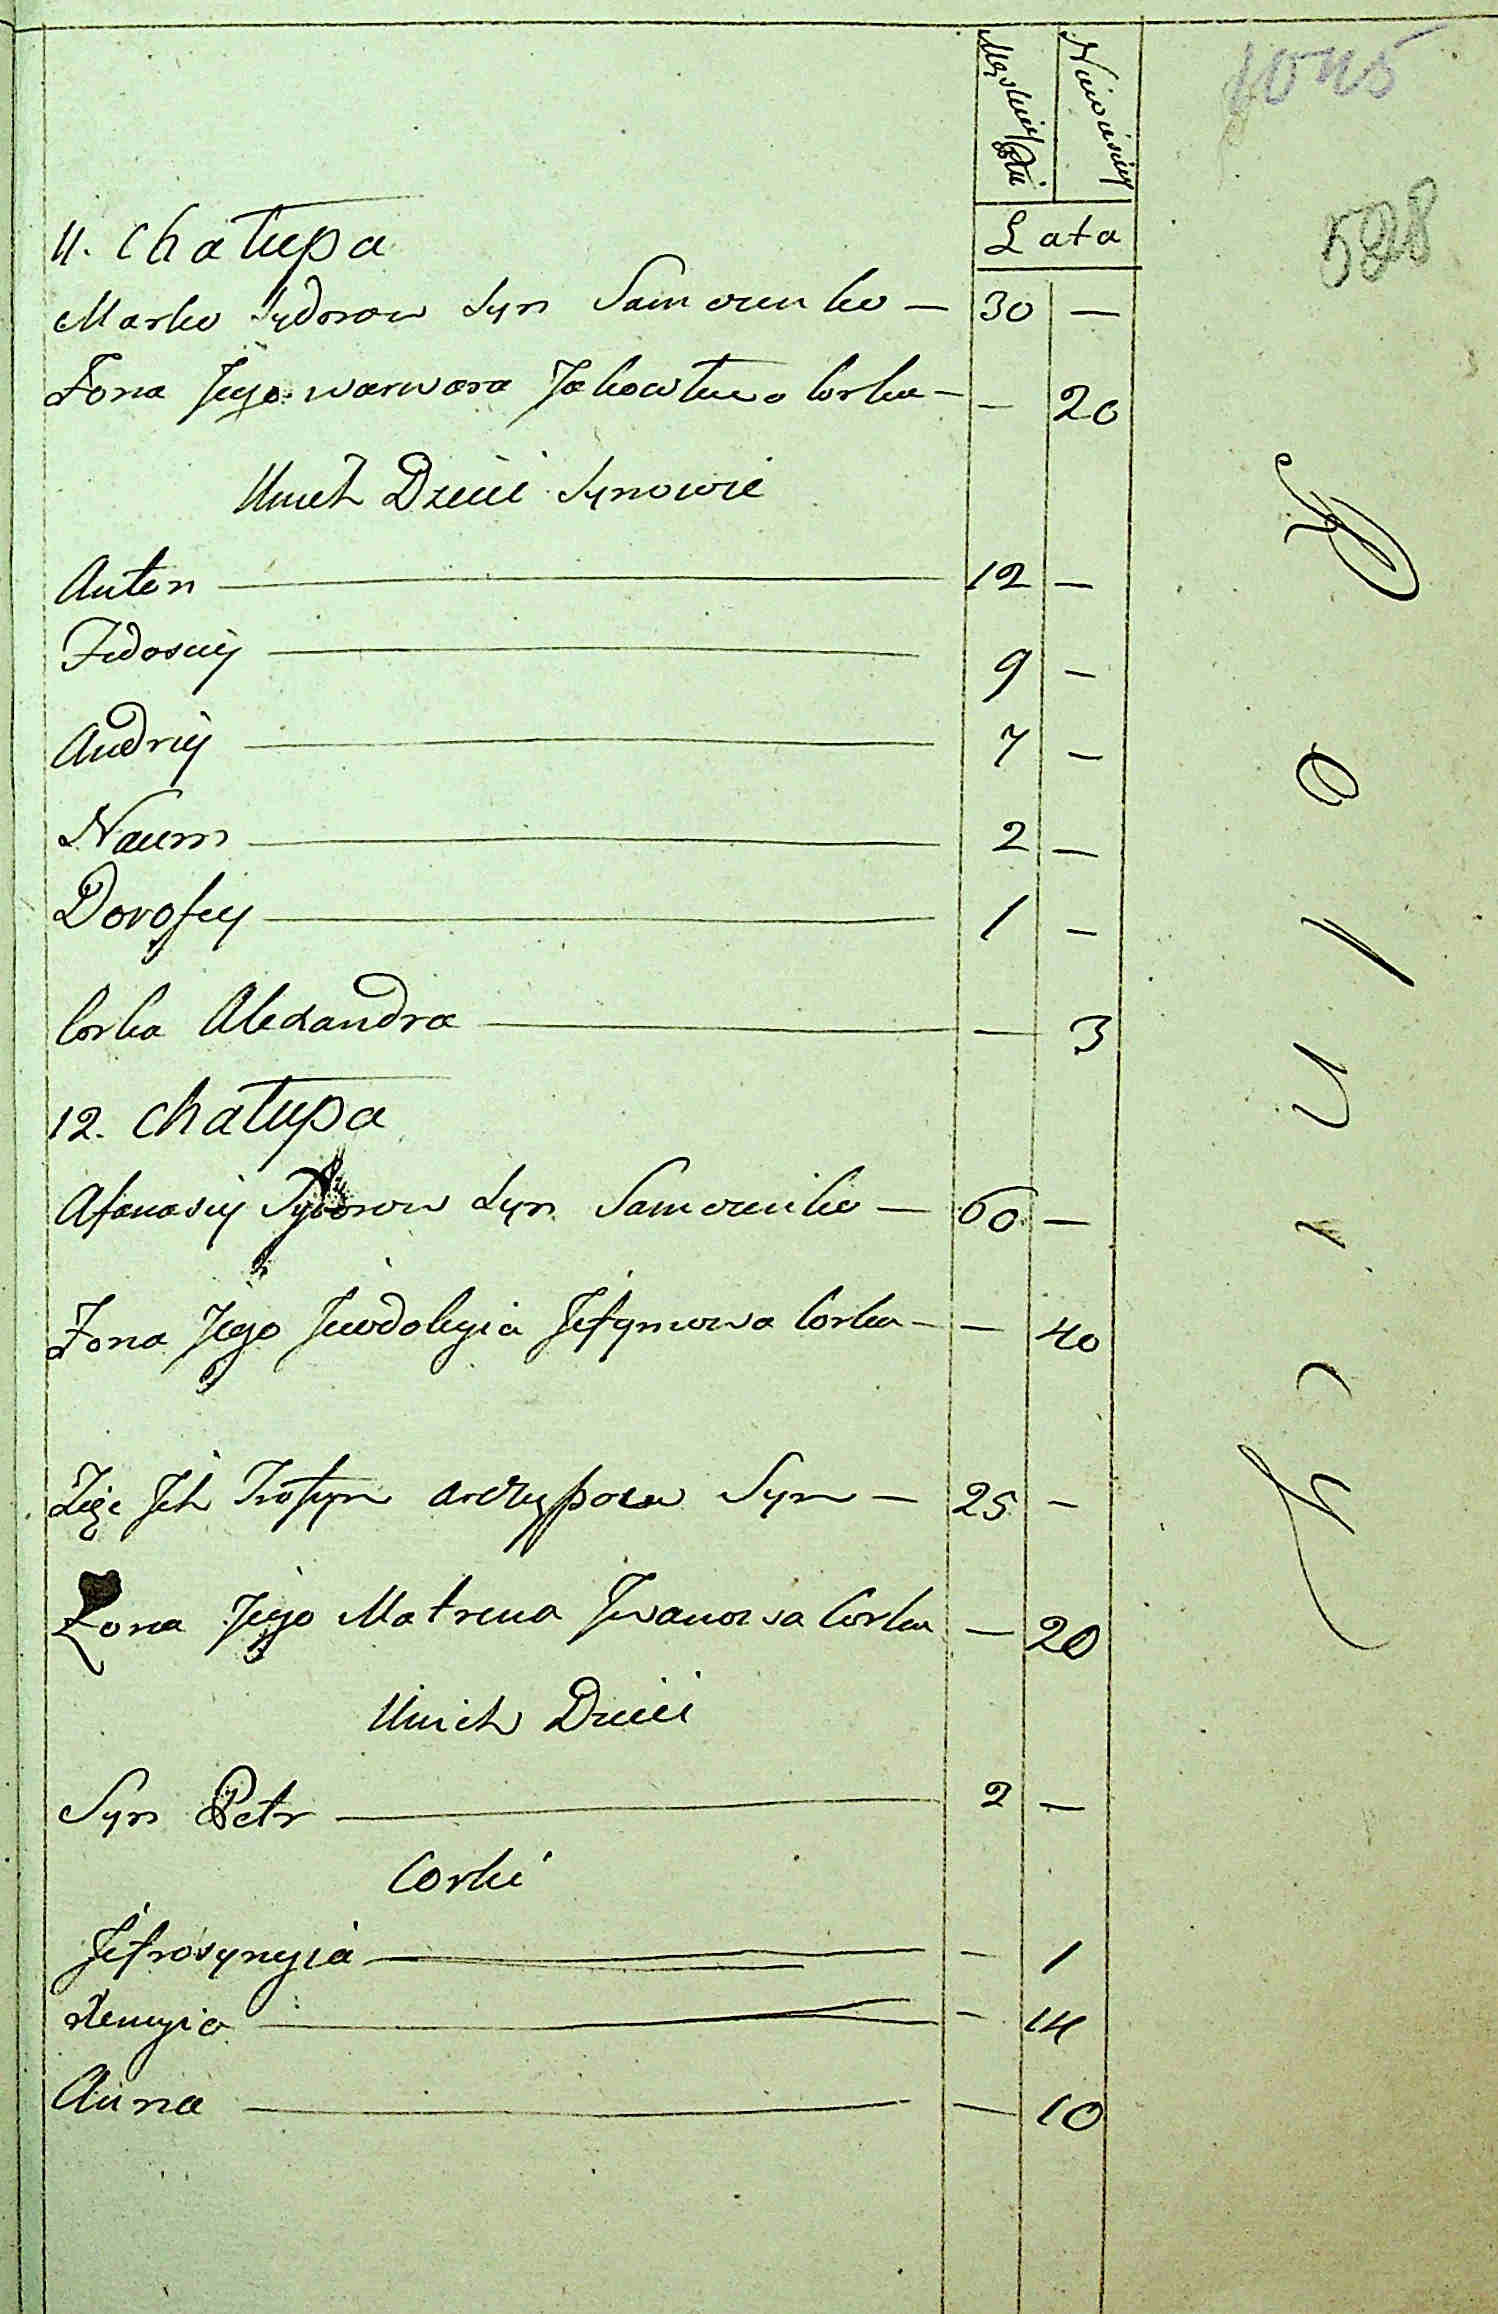 Męskiey Płci
Niewiesciey
1045
528
Lata
11. Chałupa
Marko Sydorow Syn Samoruko — 30 —
Żona Jego warwara Jakowlewa Corka — — 20
U nich Dzieci Synowie
Anton — 12 —
Fedosiey — 9 —
Andriey — 7 —
Naum — 2 —
Dorofiey — 1 —
Corka Alexandra — — 3
12. Chałupa
Afanasiy Sydorow Syn — 60 —
Żona Jego Jewdokyia Jefymowa Corka — — 40
Zięć Jch Trofym Archypow Syn — 25 —
Żona Jego Matrena Jwanowa Corka — 20
U nich Dzieci
Syn Petr — 2 —
Corki
Jefrosynyia — — 1
Xenyia — — 14
Anna — — 10